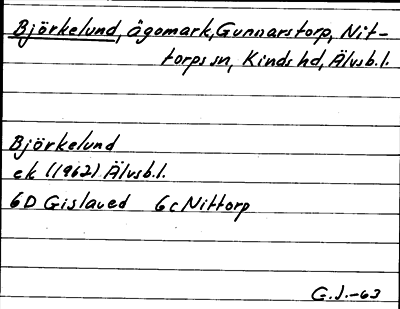 Björkelund, ägomark, Gunnarstorp, Nit-
torps sn, Kinds hd, Älvsb.l.
Björkelund
ek (1962) Älvsb.l.
6D Gislaved 6c Nittorp
G.J.-63